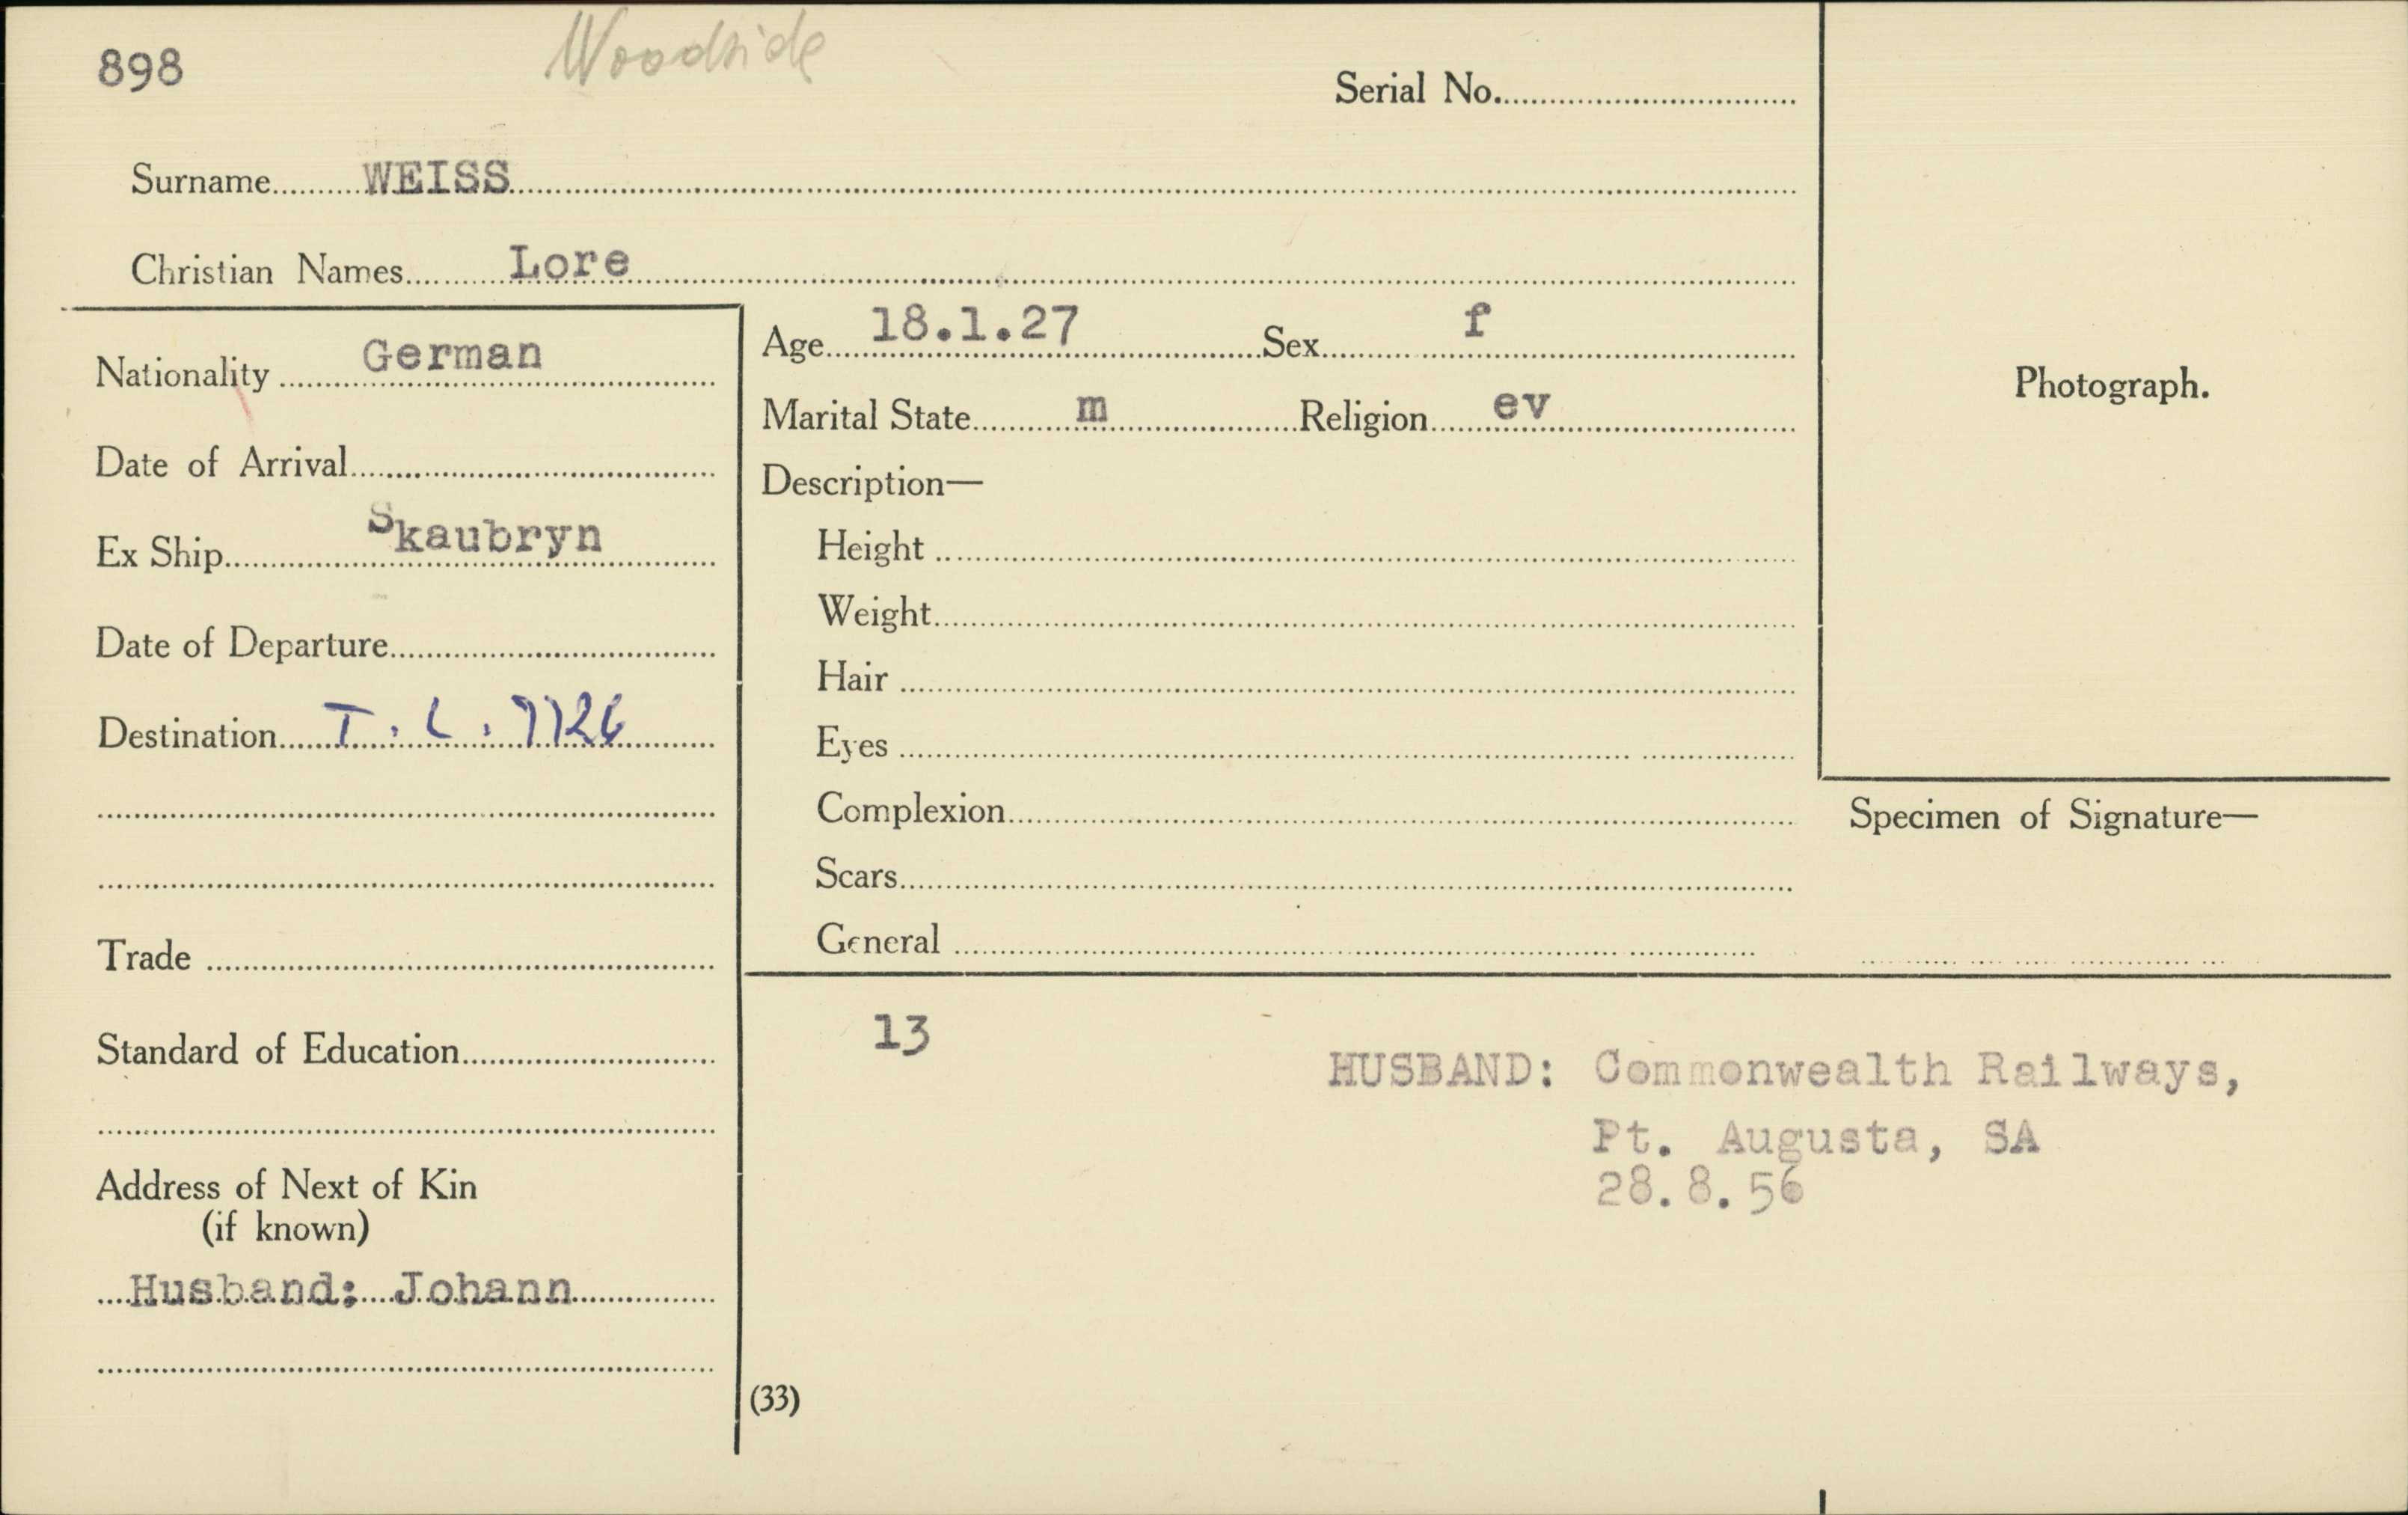 898
Woodside
Serial No.
Surname WEISS
Christian Names Lore
Nationality German
Date of Arrival
Ex Ship Skaubryn
Date of Departure
Destination T. L. 7726
Trade
Standard of Education
Address of Next of Kin
(if known)
Husband; Johann
Age 18.1.27 Sex f
Marital State m Religion ev
Description—
Height
Weight
Hair
Eyes
Complexion
Scars
General
Photograph.
Specimen of Signature—
13
HUSBAND: Commonwealth Railways,
Pt. Augusta, SA
28.8.56
(33)